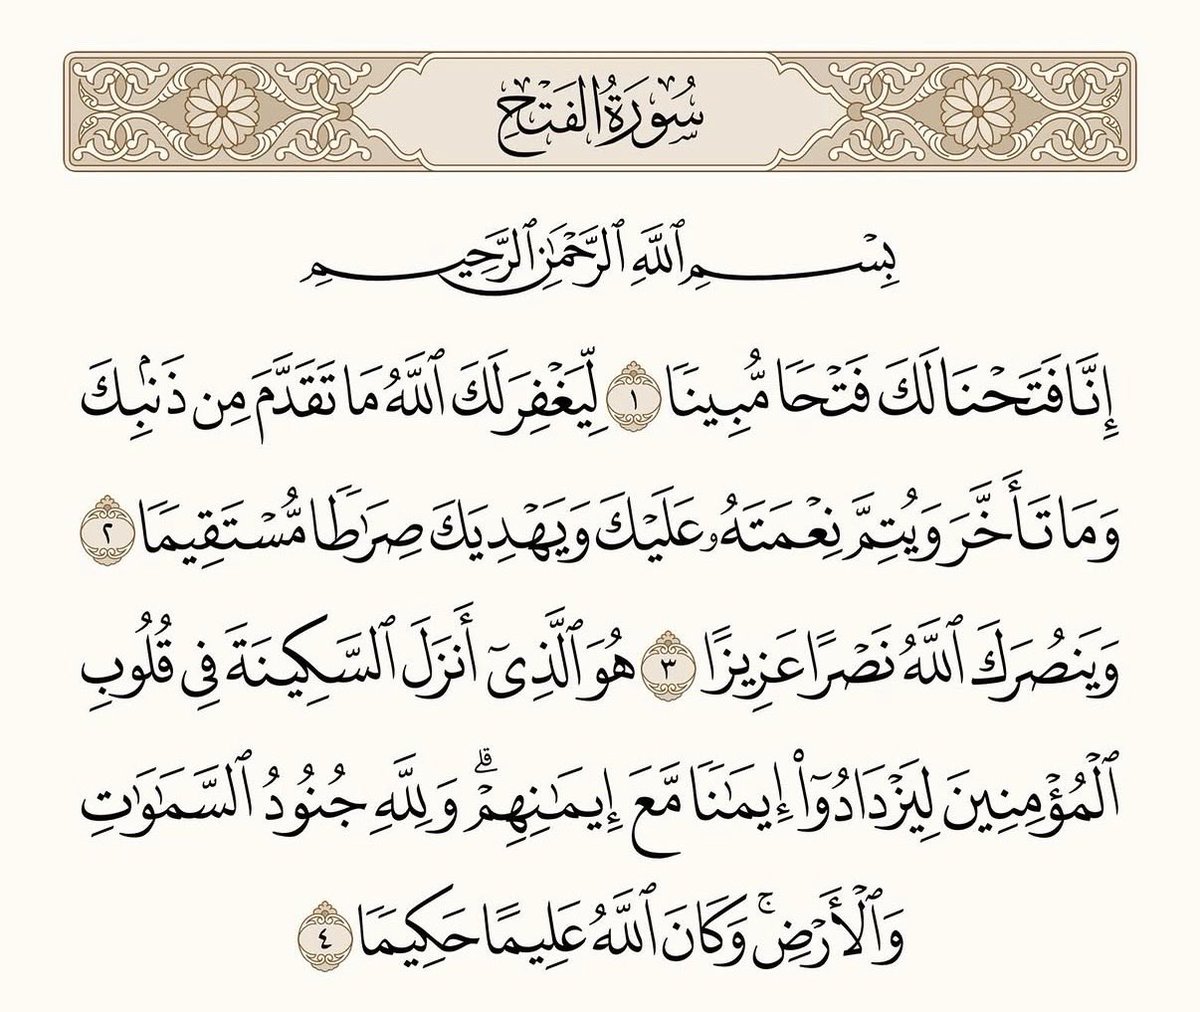 سُورَةُ الفَتْحِ
بِسْمِ ٱللَّهِ ٱلرَّحْمَٰنِ ٱلرَّحِيمِ
إِنَّا فَتَحْنَا لَكَ فَتْحًا مُّبِينًا ١ لِّيَغْفِرَ لَكَ ٱللَّهُ مَا تَقَدَّمَ مِن ذَنۢبِكَ
وَمَا تَأَخَّرَ وَيُتِمَّ نِعْمَتَهُۥ عَلَيْكَ وَيَهْدِيَكَ صِرَٰطًا مُّسْتَقِيمًا ٢
وَيَنصُرَكَ ٱللَّهُ نَصْرًا عَزِيزًا ٣ هُوَ ٱلَّذِىٓ أَنزَلَ ٱلسَّكِينَةَ فِى قُلُوبِ
ٱلْمُؤْمِنِينَ لِيَزْدَادُوٓا۟ إِيمَٰنًا مَّعَ إِيمَٰنِهِمْ ۗ وَلِلَّهِ جُنُودُ ٱلسَّمَٰوَٰتِ
وَٱلْأَرْضِ ۚ وَكَانَ ٱللَّهُ عَلِيمًا حَكِيمًا ٤